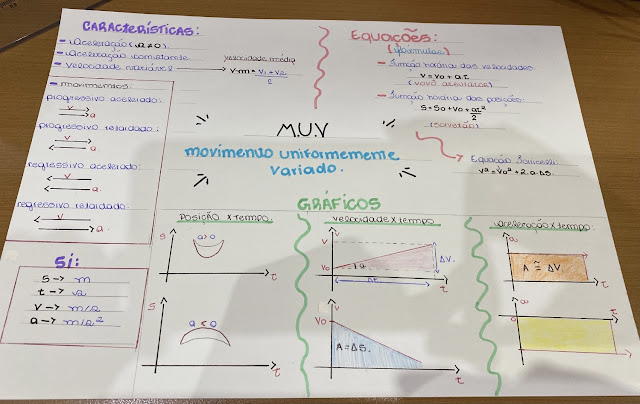 CARACTERÍSTICAS:
- Aceleração (a ≠ 0).
- Aceleração constante
- velocidade variável → velocidade média
v.m = v1 + v2
2
- movimentos:
progressivo acelerado:
v
a
progressivo retardado:
v
a
regressivo acelerado:
v
a.
regressivo retardado:
v
a.
Si:
S → m
t → s
v → m/s
a → m/s²
Equações:
(fórmulas)
- Função horária das velocidades
v = vo + at
(vovô ateu)
- Função horária das posições:
S = So + Vo + at²
2
(sorvetão)
Equação Torricelli
v² = vo² + 2.a.ΔS.
M.U.V
movimento uniformemente
variado.
GRÁFICOS
Posição x tempo
S
a > 0
t
S
a < 0
t
velocidade x tempo
v
v
Vo
ΔV.
Δt
t
v
Vo
A = ΔS.
t
aceleração x tempo:
a
A ≅ ΔV
t
a
t